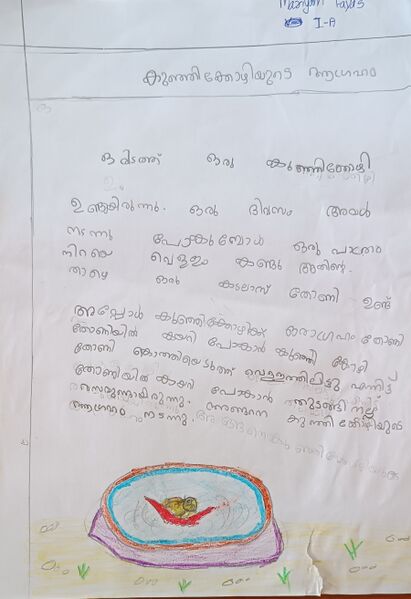 I-A
കുഞ്ഞികോഴിയുടെ ആഗ്രഹം
ഒരിടത്ത് ഒരു കുഞ്ഞിക്കോഴി
ഉണ്ടായിരുന്നു. ഒരു ദിവസം അവൾ
നടന്നു പോകുമ്പോൾ ഒരു പാത്രം
നിറയെ വെള്ളം കണ്ടു അതിന്റെ
താഴെ ഒരു കടലാസ് തോണി ഉണ്ട്
അപ്പോൾ കുഞ്ഞിക്കോഴിക്ക് ഒരാഗ്രഹം തോണി
തോണിയിൽ കയറി പോകാൻ കുഞ്ഞി കോഴി
തോണി കൊത്തിയെടുത്ത് വെള്ളത്തിലിട്ടു എന്നിട്ട്
തോണിയിൽ കയറി പോകാൻ തുടങ്ങി നല്ല
രസമുണ്ടായിരുന്നു. അങ്ങനെ കുഞ്ഞി കോഴിയുടെ
ആഗ്രഹം നടന്നു.